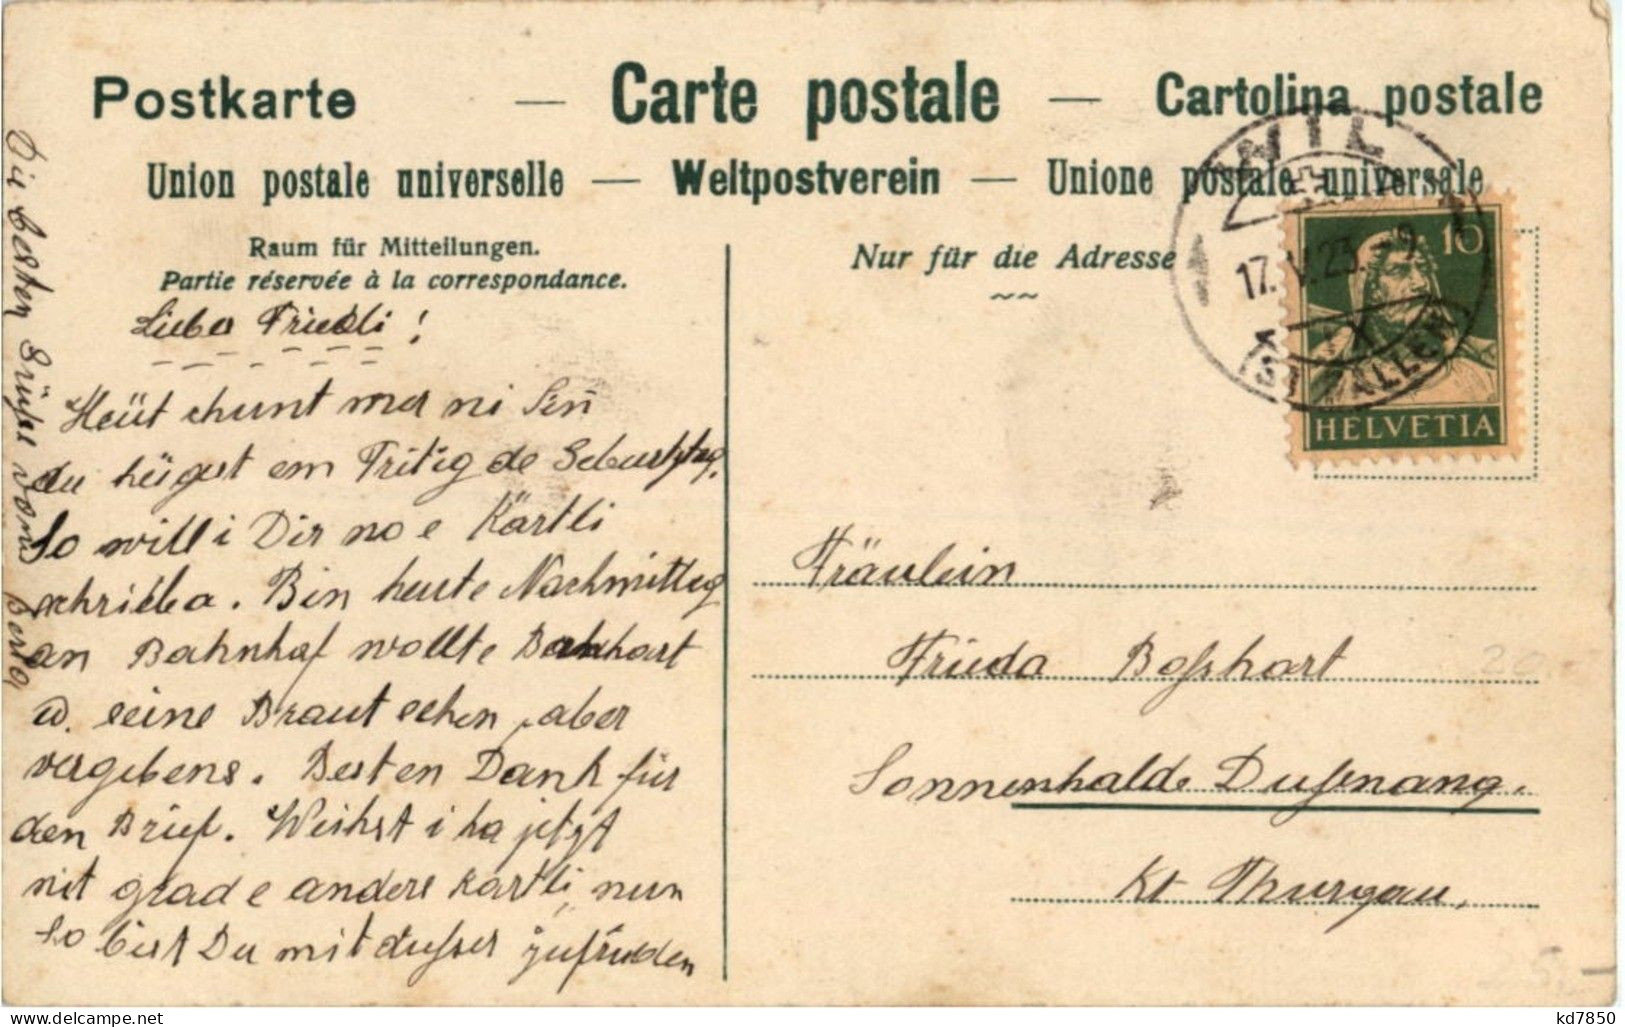 Postkarte — Carte postale — Cartolina postale
Union postale universelle — Weltpostverein — Unione postale universale
Raum für Mitteilungen.
Partie réservée à la correspondance.
Nur für die Adresse
WIL
17. V. 23. - 9
(ST. GALLEN)
10
HELVETIA
Liebes Friedli!
Heüt chunt mer ni Sen̄
du heigest em Fritig de Geburtstag.
So will i Dir no e Kärtli
schrieba. Bin heute Nachmittag
an Bahnhof wollte Boßhart
u. seine Braut sehen, aber
vergebens. Besten Dank für
den Brief. Weihst i ha jetzt
nit grad e andere Kärtli, nun
so bist Du mit dießer zufrieden
Die besten Grüße von Berta
Fräulein
Frieda Boßhart
Sonnenhalde Dußnang.
Kt Thurgau,
20
25.-
kd7850